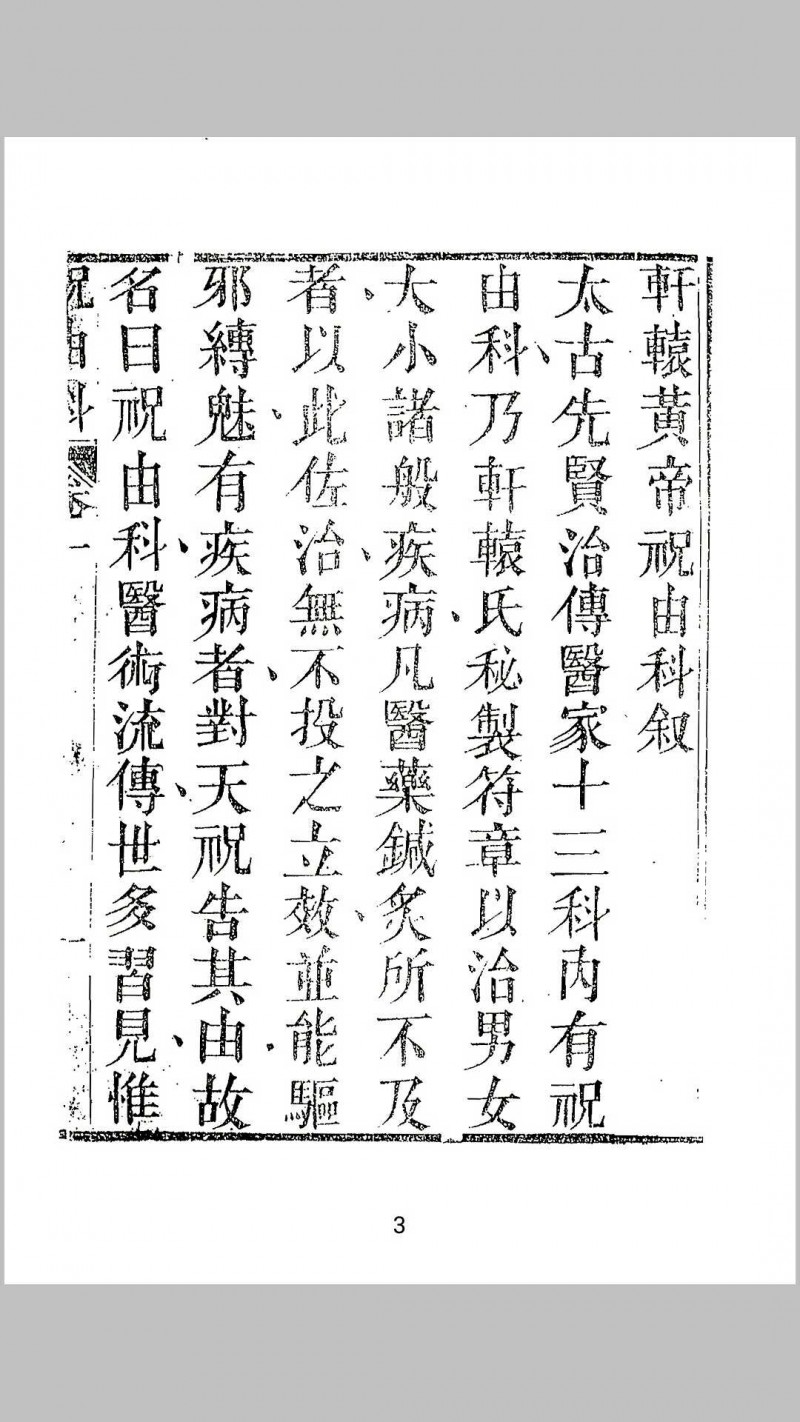 軒轅黃帝祝由科叙
太古先賢治傳醫家十三科內有祝
由科、乃軒轅氏秘製符章以治男女
大小諸般疾病、凡醫藥鍼炙所不及
者、以此佐治、無不投之立效、並能驅
邪縛魅、有疾病者、對天祝告其由、故
名曰祝由科、醫術流傳、世多習見、惟
祝由科 卷一 一
3